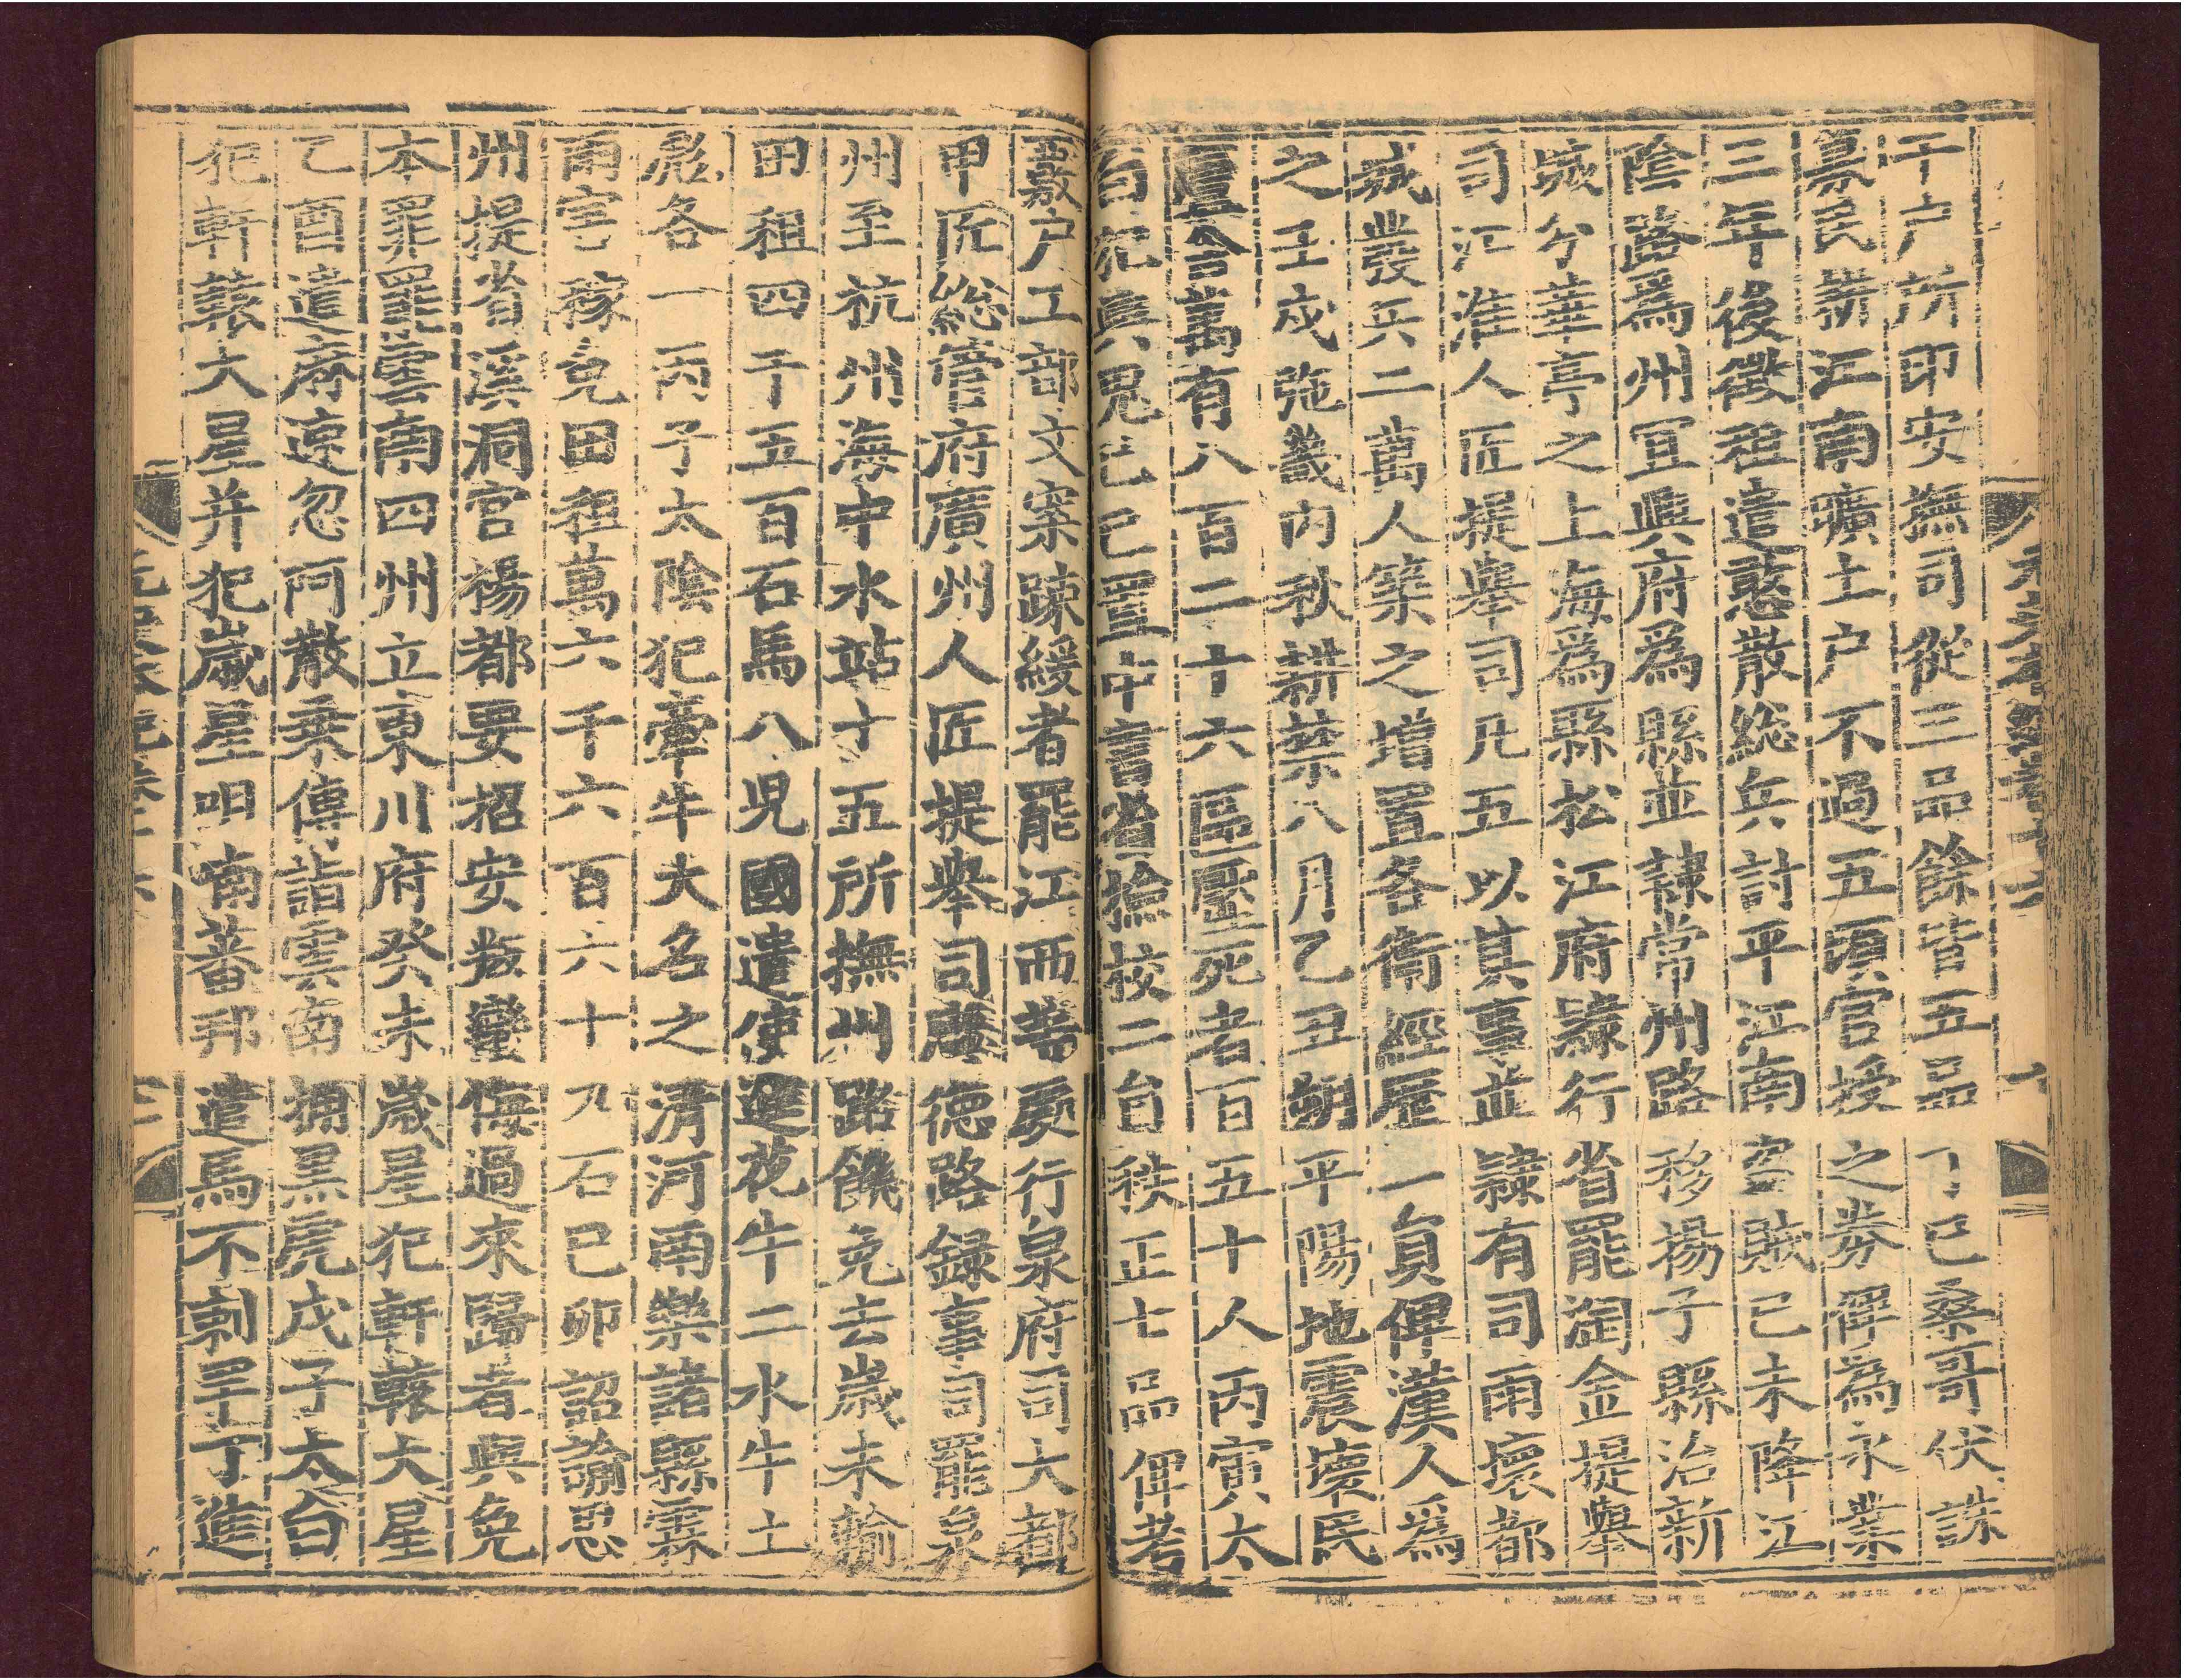 千户所印安撫司從三品餘皆五品丁巳桑哥伏誅
募民耕江南曠土户不過五頃官授之券俾為永業
三年後徵租遣憨散総兵討平江南盗賊己未降江
隂路爲州冝興府爲縣並隷常州路移楊子縣治新
城分華亭之上海爲縣松江府隷行省罷淘金提舉
司江淮人匠提舉司凡五以其事並隷有司雨壞都
城發兵二萬人築之增置各衛經歷一員俾漢人爲
之壬戌弛畿内秋耕禁八月乙丑朔平陽地震壊民
廬舍萬有八百二十六區壓死者百五十人丙寅太
白犯輿鬼己巳置中書省撿挍二自秩正七品俾考
覈户工部文案踈緩者罷江西等處行泉府司大都
甲匠総管府廣州人匠提舉司廣徳路録事司罷泉
州至杭州海中水站十五所撫州路饑免去歳未輸
田租四千五百石馬八児國遣使進花牛二水牛土
彪各一丙子太隂犯牽牛大名之清河南樂諸縣霖
雨害稼免田租萬六千六百六十九石己卯詔諭思
州提省溪洞官楊都要招安叛蠻悔過來歸者與免
本罪罷雲南四州立東川府癸未歳星犯軒轅大星
乙酉遣麻速忽阿散乗傳詣雲南捕黒虎戊子太白
犯軒轅大星并犯歳星咀喃蕃邦遣馬不剌罕丁進